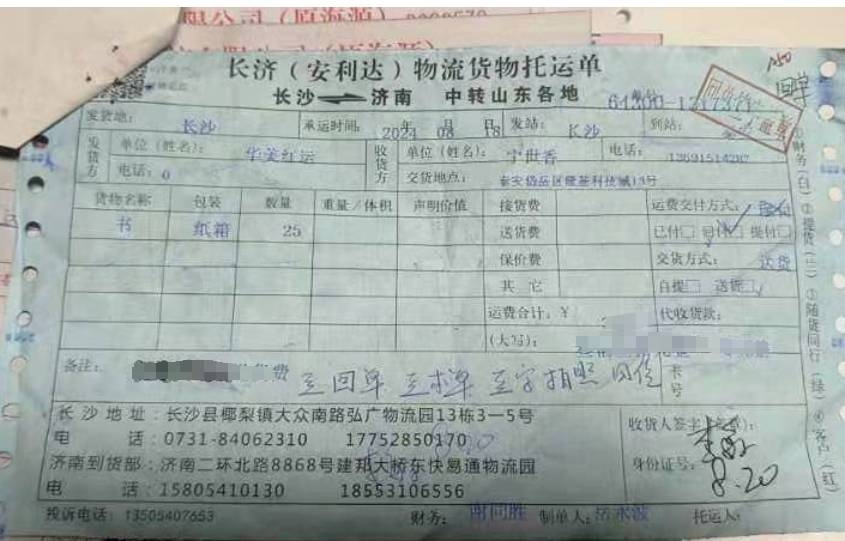 长济（安利达）物流货物托运单
长沙 济南 中转山东各地
发货地： 长沙 承运时间： 2021 年 08 月 18 发站： 长沙 到站：
发货方 单位（姓名）： 华美红运 收货方 单位（姓名）： 宁世香 电话：
电话：0 交货地点： 泰安岱岳区隆基科技城13号
货物名称 包装 数量 重量/体积 声明价值 接货费 运费交付方式：
书 纸箱 25 送货费 已付□ 回付□ 提付□
保价费 交货方式： 送货
其它 自提□ 送货□
运费合计：￥ 代收货款：
（大写）：
备注： 货费 至回单 卡号
长沙地址：长沙县榔梨镇大众南路弘广物流园13栋3—5号
电话：0731-84062310 17752850170
收货人签字（盖章）：
济南到货部：济南二环北路8868号建邦大桥东快易通物流园
身份证号：
8.20
电话：15805410130 18553106556
投诉电话：13505407653 财务： 谢同胜 制单人： 岳永波 托运人：
①财务（白）②提货（兰）③随货同行（绿）④客户（红）